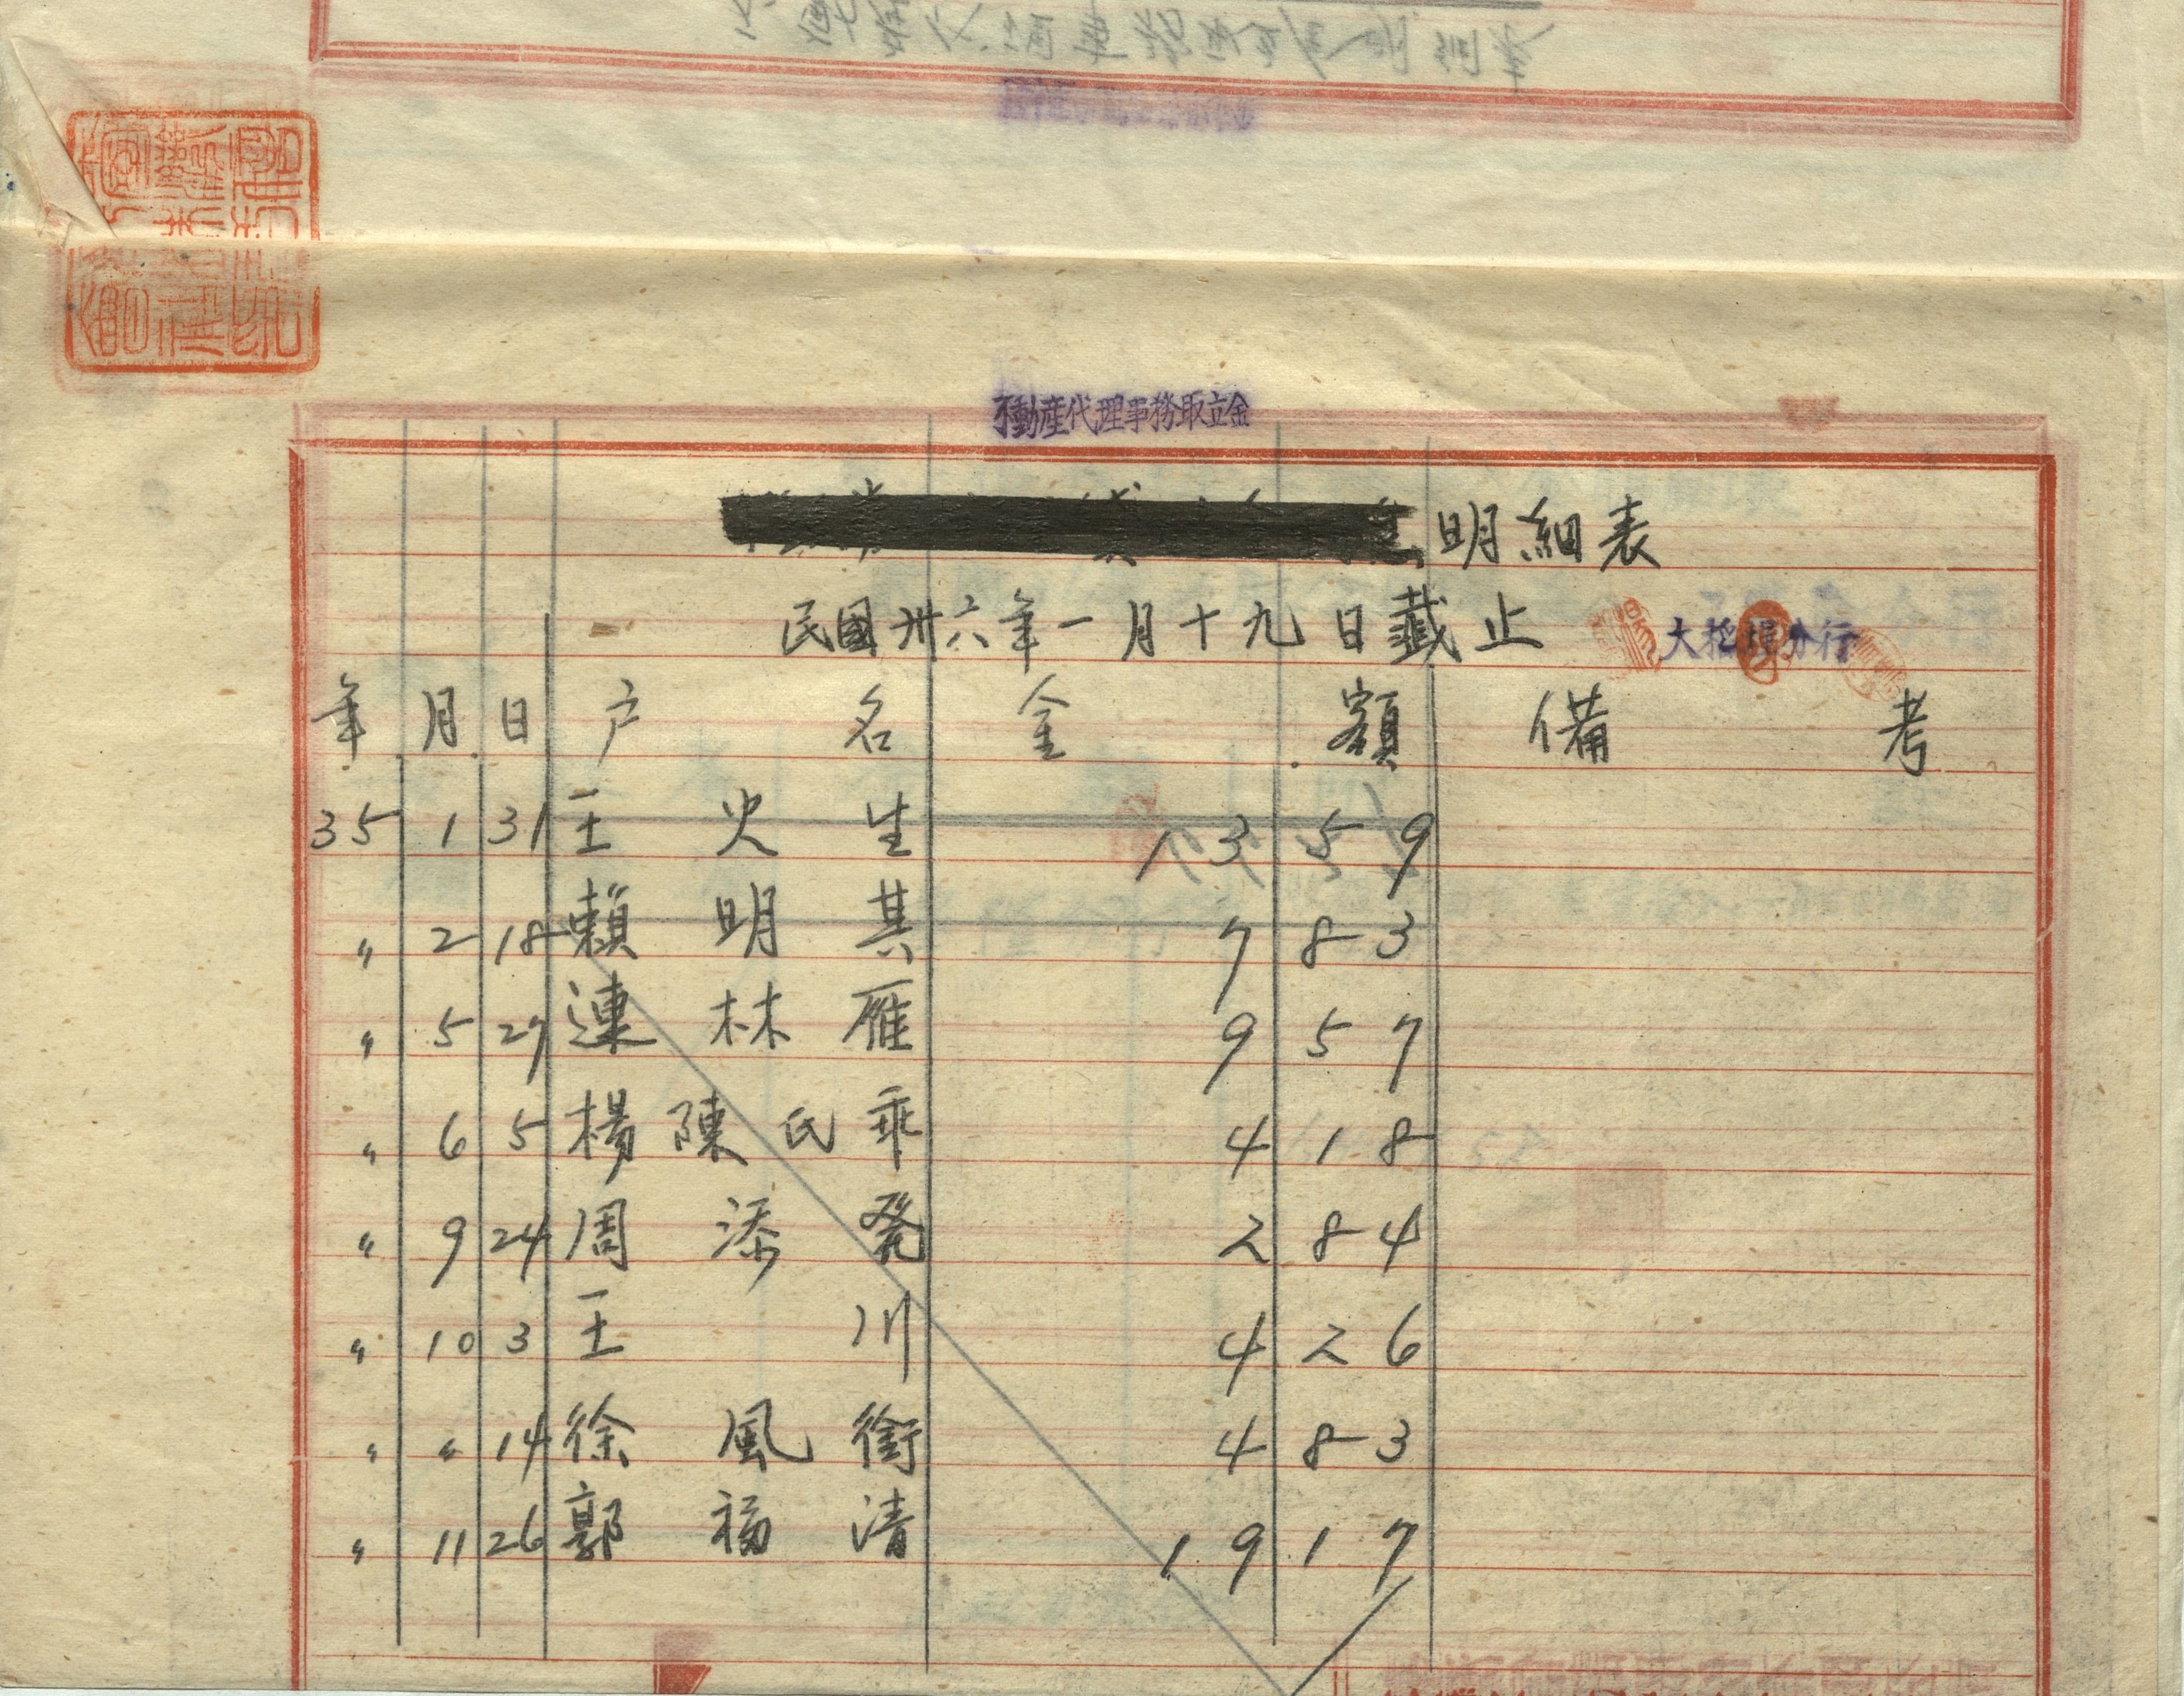 不動産代理事務取立金
明細表
民國卅六年一月十九日截止
大稻埕分行
年 月 日 户名 金額 備考
35 1 31 王火生 13 59
〃 2 18 賴明其 7 83
〃 5 27 連林雁 9 57
〃 6 5 楊陳氏乖 4 18
〃 9 24 周添発 2 84
〃 10 3 王川 4 26
〃 〃 14 徐風銜 4 83
〃 11 26 郭福清 19 17